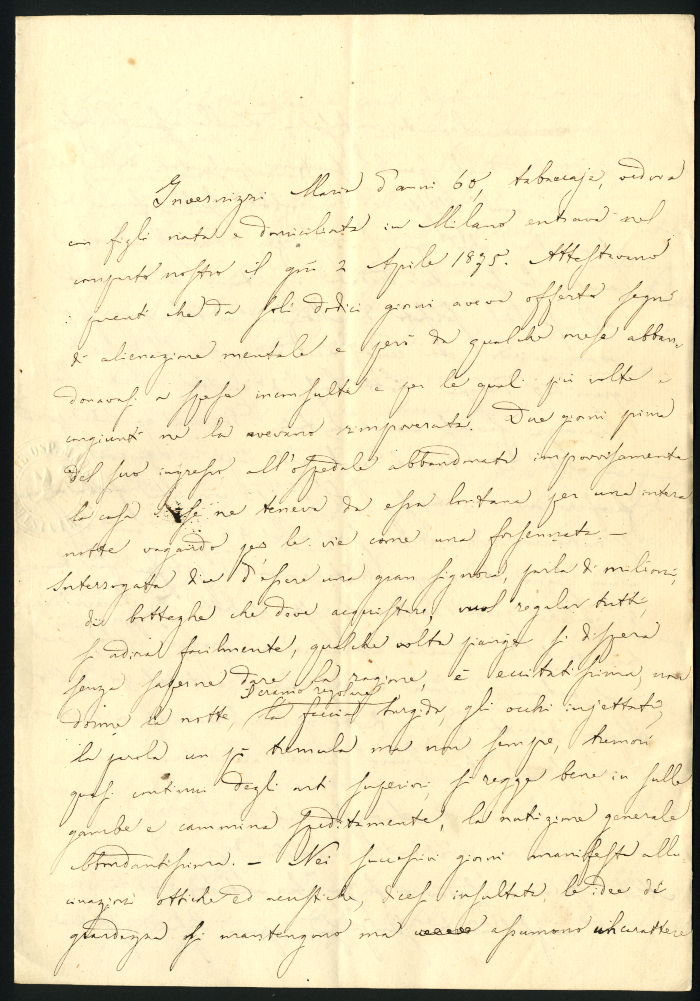 Invernizzi Maria d'anni 60, tabaccaja, vedova
con figli nata e domiciliata in Milano entrava nel
comparto nostro il giù 2 Aprile 1875. Attestavano
i parenti che da soli dodici giorni aveva offerto segni
di alienazione mentale e però da qualche mese abban-
donavasi a spese inconsulte e per le quali più volte i
congiunti ne la avevano rimproverata. Due giorni prima
del suo ingresso all'Ospedale abbandonata improvvisamente
la casa se ne teneva da essa lontana per una intera
notte vagando per le vie come una forsennata. —
Interrogata dice d'essere una gran signora, parla di milioni,
di botteghe che deve acquistare, vuol regalar tutti,
si adira facilmente, qualche volta piange si dispera
senza saperne dare la ragione, è eccitatissima, non
Cranio regolare
dorme la notte, la faccia turgida, gli occhi injettati,
la parola un pò tremula ma non sempre, tremori
quasi continui degli arti superiori si regge bene in sulle
gambe e cammina speditamente, la nutrizione generale
abbondantissima. — Nei successivi giorni manifesta allu-
cinazioni ottiche ed acustiche, dicesi insultata, le idee di
grandezza si mantengono ma assumono un carattere